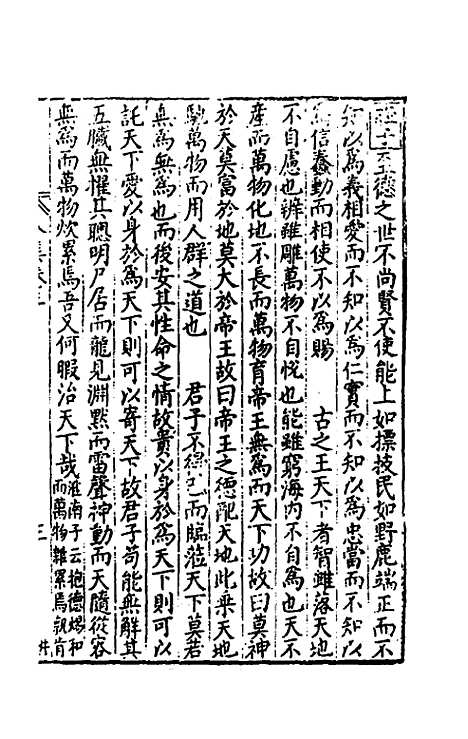 莊子 至德之世不尚賢不使能上如摽枝民如野鹿端正而不
知以爲義相愛而不知以爲仁實而不知以爲忠當而不知以
爲信蠢動而相使不以爲賜 古之王天下者智雖落天地
不自慮也辨雖雕萬物不自悅也能雖窮海内不自爲也天不
產而萬物化地不長而萬物育帝王無爲而天下功故曰莫神
於天莫富於地莫大於帝王故曰帝王之德配天地此乘天地
馳萬物而用人群之道也 君子不得已而臨蒞天下莫若
無爲無爲也而後安其性命之情故貴以身於爲天下則可以
託天下愛以身於爲天下則可以寄天下故君子苟能無解其
五臟無擢其聰明尸居而龍見淵默而雷聲神動而天隨從容
無爲而萬物炊累焉吾又何暇治天下哉淮南子云抱德煬和
而萬物雜累焉孰肯
三